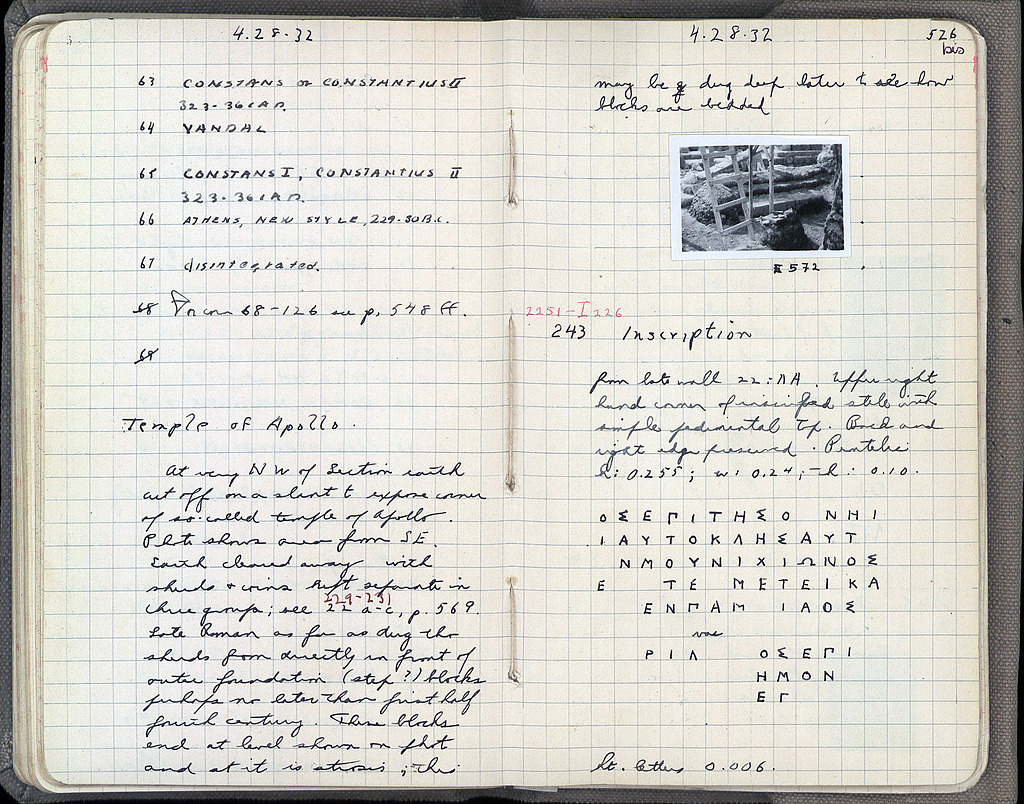 4.28.32
63 CONSTANS or CONSTANTIUS II
323-361 A.D.
64 VANDAL
65 CONSTANS I, CONSTANTIUS II
323-361 A.D.
66 ATHENS, NEW STYLE, 229-30 B.C.
67 disintegrated.
68 For coins 68-126 see p. 548 ff.
69
Temple of Apollo.
At very NW of Section earth
cut off on a slant to expose corner
of so-called temple of Apollo.
Photo shows area from SE.
Earth cleared away with
sherds + coins kept separate in
229-231
three groups; see 22 a-c, p. 569.
Late Roman as far as dug tho
sherds from directly in front of
outer foundation (step?) blocks
perhaps no later than first half
fourth century. These blocks
end at level shown on phot
and at it is; this
4.28.32
526
bis
may be dug deep later to see how
blocks are bedded
572
2251-I 226
243 Inscription
from late wall 22:ΛΗ. Upper right
hand corner of inscribed stele with
simple pedimental top. Back and
right edge preserved. Pentelic
h: 0.255; w: 0.24; th: 0.10.
Ο Σ Ε Γ Ι Τ Η Σ Ο Ν Η Ι
Ι Α Υ Τ Ο Κ Λ Η Σ Α Υ Τ
Ν Μ Ο Υ Ν Ι Χ Ι Ω Ν Ο Σ
Ε Τ Ε Μ Ε Τ Ε Ι Κ Α
Ε Ν Π Α Μ Ι Λ Ο Σ
vac
Ρ Ι Λ Ο Σ Ε Γ Ι
Η Μ Ο Ν
Ε Γ
ht. letters 0.006.